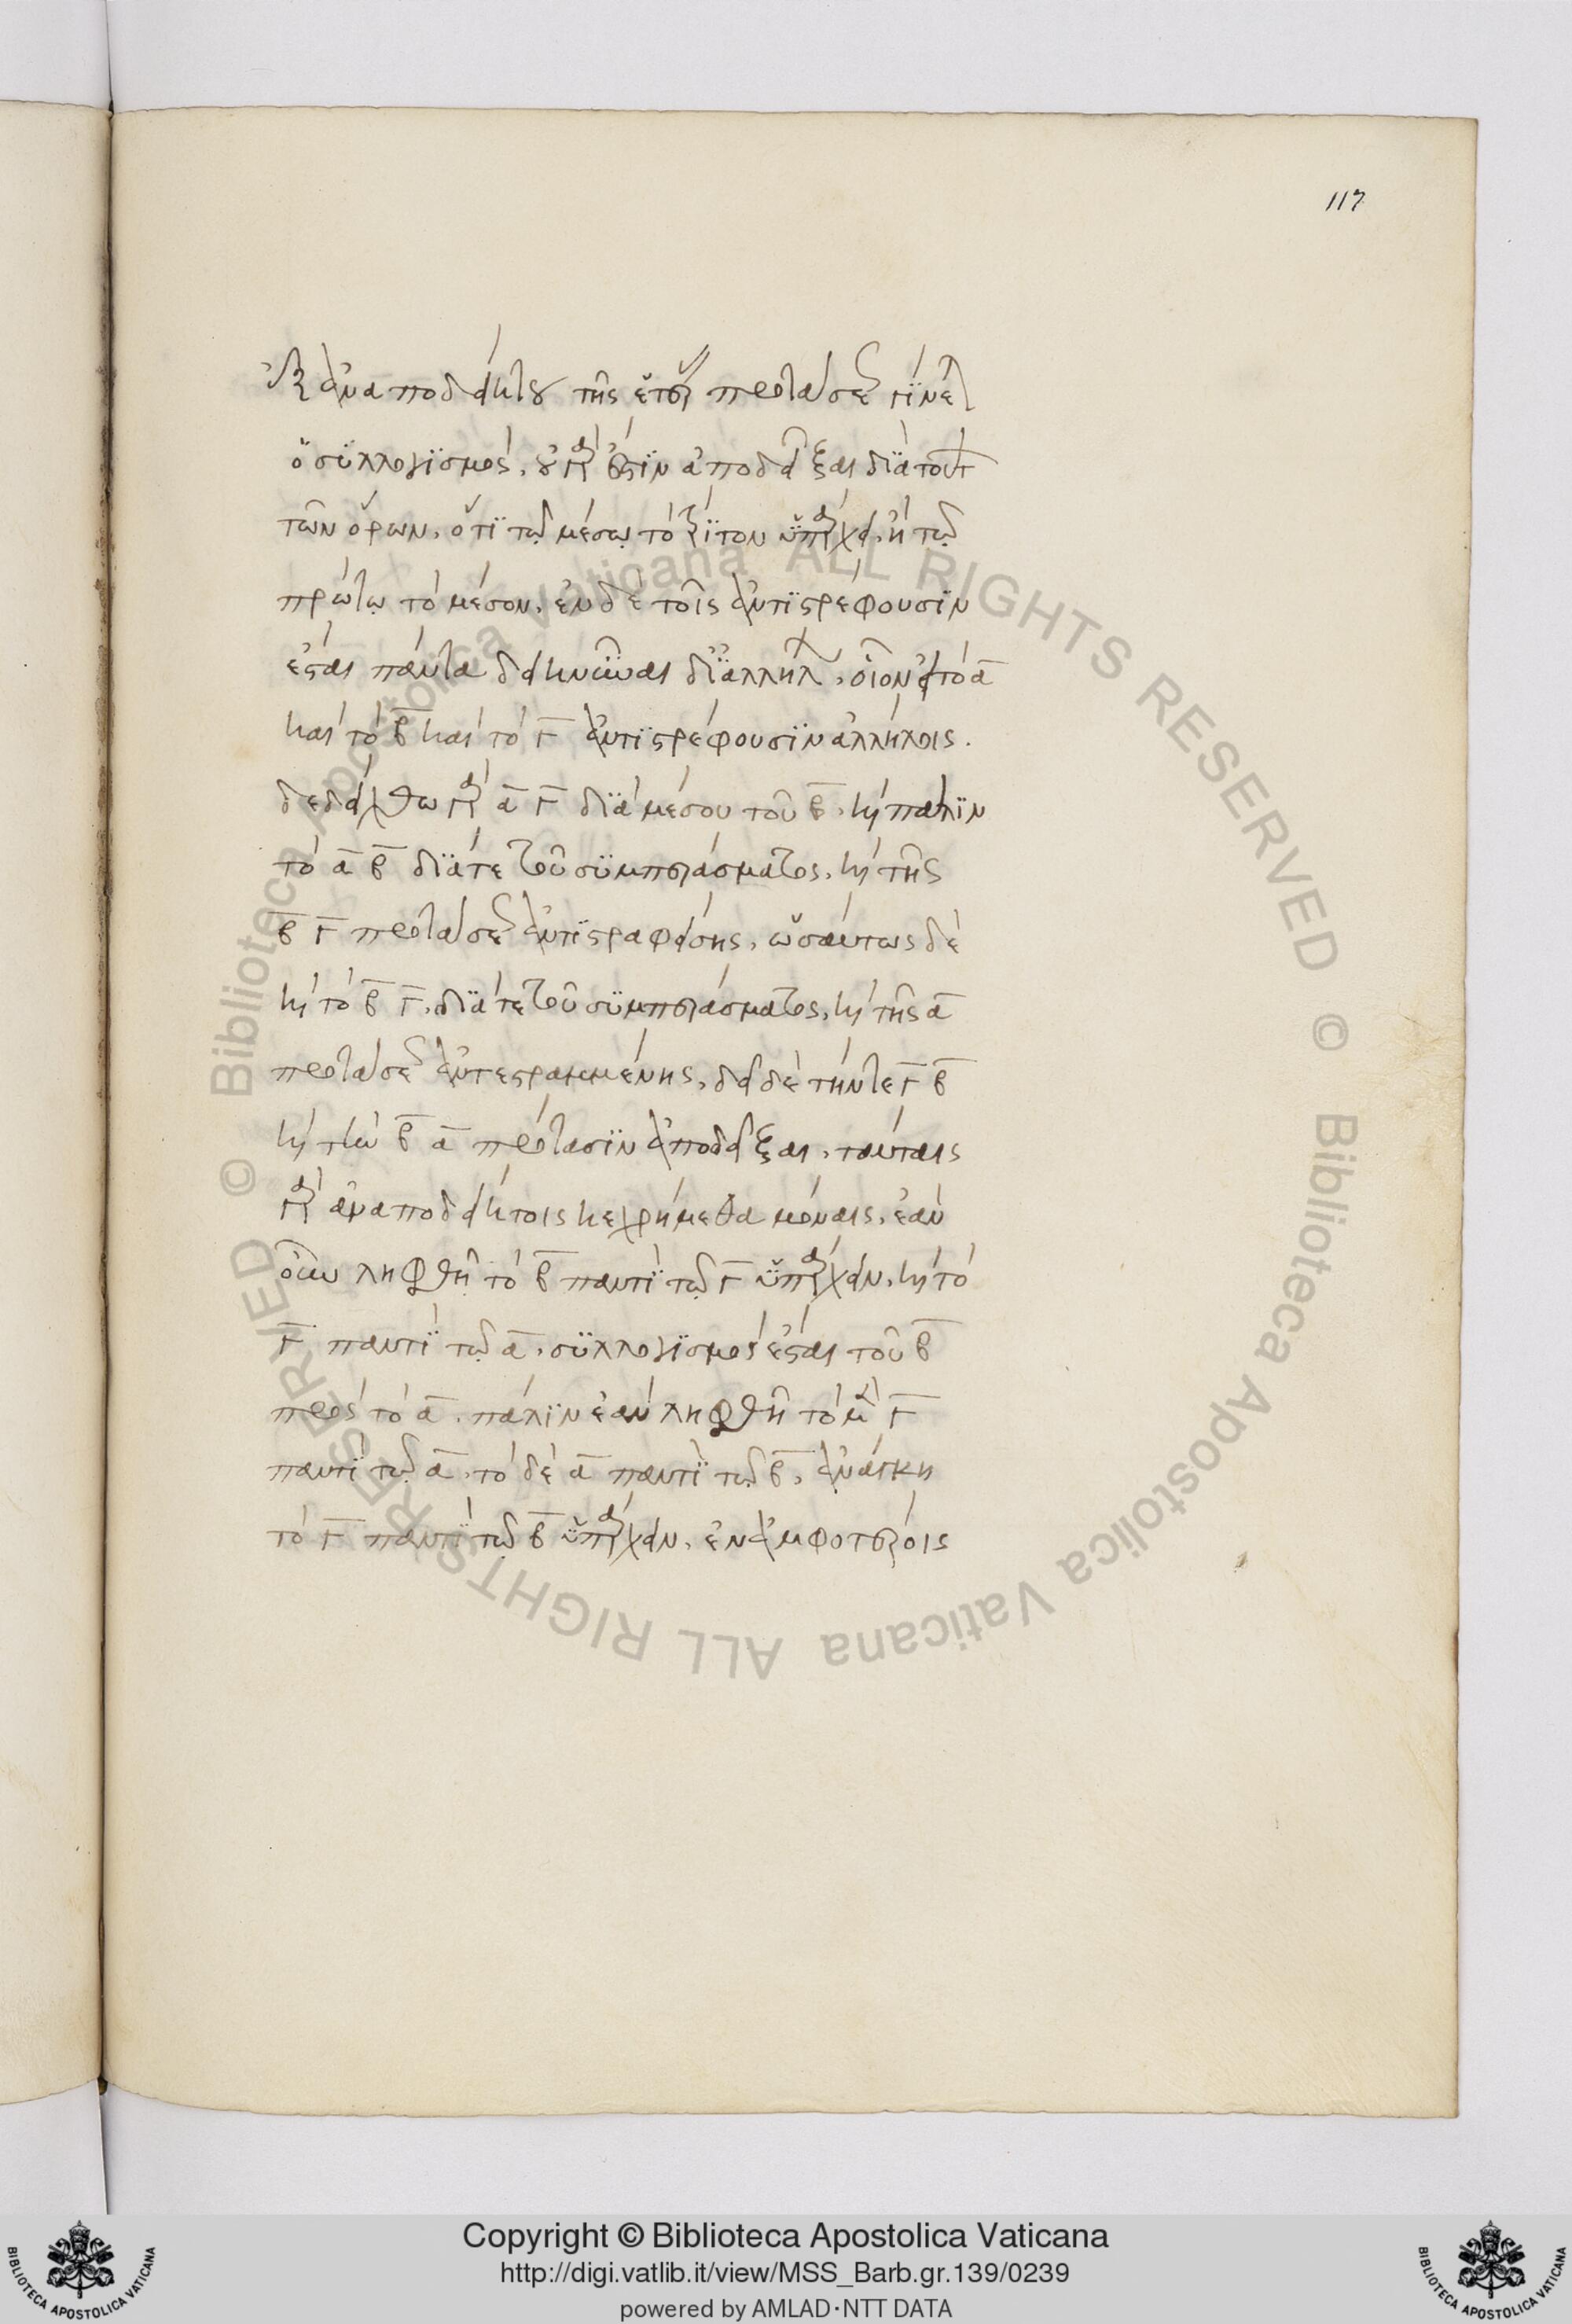 117
ἐξ ἀναποδείκτου τῆς ἑτέρας προτάσεως γίνεται
ὁ συλλογισμός. οὐ γάρ ἐστιν ἀποδεῖξαι διὰ τούτων
τῶν ὅρων, ὅτι τῷ μέσῳ τὸ τρίτον ὑπάρχει, ἢ τῷ
πρώτῳ τὸ μέσον. ἐν δὲ τοῖς ἀντιστρέφουσιν
ἔσται πάντα δεικνύναι δι' ἀλλήλων, οἷον εἰ τὸ α
καὶ τὸ β καὶ τὸ γ ἀντιστρέφουσιν ἀλλήλοις.
δεδείχθω γὰρ α γ διὰ μέσου τοῦ β, καὶ πάλιν
τὸ α β διά τε τοῦ συμπεράσματος, καὶ τῆς
β γ προτάσεως ἀντιστραφείσης, ὡσαύτως δὲ
καὶ τὸ β γ, διά τε τοῦ συμπεράσματος, καὶ τῆς α
προτάσεως ἀντεστραμμένης, δεῖ δὲ τήν τε γ β
καὶ τὴν β α πρότασιν ἀποδεῖξαι, ταύταις
γὰρ ἀναποδείκτοις κεχρήμεθα μόναις, ἐὰν
οὖν ληφθῇ τὸ β παντὶ τῷ γ ὑπάρχειν, καὶ τὸ
γ παντὶ τῷ α, συλλογισμὸς ἔσται τοῦ β
πρὸς τὸ α. πάλιν ἐὰν ληφθῇ τὸ μὲν γ
παντὶ τῷ α, τὸ δὲ α παντὶ τῷ β, ἀνάγκη
τὸ γ παντὶ τῷ β ὑπάρχειν, ἐν ἀμφοτέροις
© Biblioteca Apostolica Vaticana ALL RIGHTS RESERVED
© Biblioteca Apostolica Vaticana ALL RIGHTS RESERVED
Copyright © Biblioteca Apostolica Vaticana
http://digi.vatlib.it/view/MSS_Barb.gr.139/0239
powered by AMLAD·NTT DATA
BIBLIOTECA APOSTOLICA VATICANA
BIBLIOTECA APOSTOLICA VATICANA